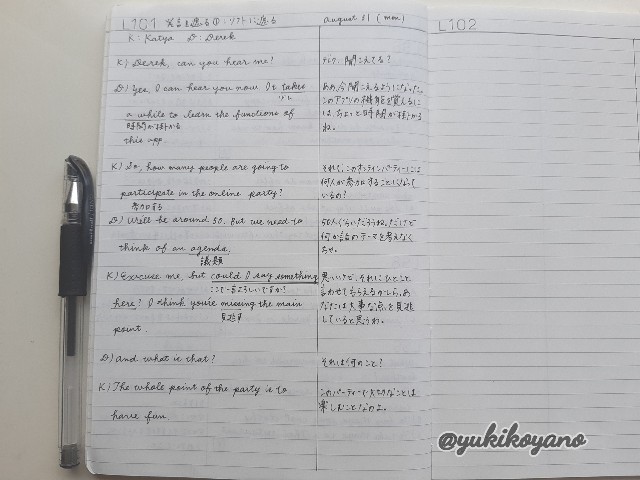 L101 発言を遮る①:ソフトに遮る
August 31 (mon)
L102
K: Katya D: Derek
K) Derek, can you hear me?
デレク、聞こえてる?
D) Yes, I can hear you now. It takes
a while to learn the functions of
時間が掛かる
this app.
ああ、今聞こえるようになった。
このアプリの機能を覚えるに
は、ちょっと時間が掛かる
ね。
K) So, how many people are going to
participate in the online party?
参加する
それで、このオンラインパーティーには
何人が参加することになって
いるの?
D) We'll be around 50. But we need to
think of an agenda.
議題
50人ぐらいだろうね。だけど
何か話のテーマを考えなく
ちゃ。
K) Excuse me, but could I say something
ここで一言よろしいですか?
here? I think you're missing the main
見逃す
point.
悪いけど、それにひとこと
言わせてもらえるかしら。あ
なたは大事な点を見逃
していると思うわ。
D) And what is that?
それは何のこと?
K) The whole point of the party is to
have fun.
このパーティーで大切なことは
楽しむことなのよ。
@yukikoyano